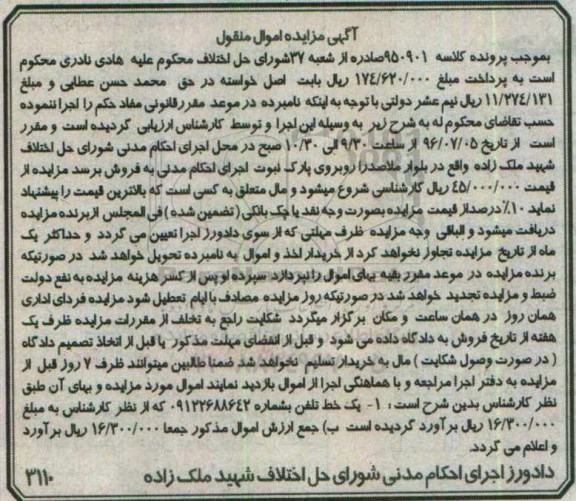 آگهی مزایده اموال منقول
بموجب پرونده کلاسه ۹۵۰۹۰۱صادره از شعبه ۳۷شورای حل اختلاف محکوم علیه هادی نادری محکوم
است به پرداخت مبلغ ۱۷٤/٦۲۰/۰۰۰ ریال بابت اصل خواسته در حق محمد حسن عطایی و مبلغ
۱۱/۲۷٤/۱۳۱ ریال نیم عشر دولتی با توجه به اینکه نامبرده در موعد مقرر قانونی مفاد حکم را اجرا ننموده
حسب تقاضای محکوم له به شرح زیر به وسیله این اجرا و توسط کارشناس ارزیابی گردیده است و مقرر
است از تاریخ ۹٦/۰۷/۰۵ از ساعت ۹/۳۰ الی ۱۰/۳۰ صبح در محل اجرای احکام مدنی شورای حل اختلاف
شهید ملک زاده واقع در بلوار ملاصدرا روبروی پارک نبوت اجرای احکام مدنی به فروش برسد مزایده از
قیمت ٤۵/۰۰۰/۰۰۰ ریال کارشناسی شروع میشود و مال متعلق به کسی است که بالاترین قیمت را پیشنهاد
نماید ۱۰٪درصد از قیمت مزایده بصورت وجه نقد یا چک بانکی ( تضمین شده ) فی المجلس از برنده مزایده
دریافت میشود و الباقی وجه مزایده ظرف مهلتی که از سوی دادورز اجرا تعیین می گردد و حداکثر یک
ماه از تاریخ مزایده تجاوز نخواهد کرد از خریدار اخذ و اموال به نامبرده تحویل خواهد شد در صورتیکه
برنده مزایده در موعد مقرر بقیه بهای اموال را نپردازد سپرده او پس از کسر هزینه مزایده به نفع دولت
ضبط و مزایده تجدید خواهد شد در صورتیکه روز مزایده مصادف با ایام تعطیل شود مزایده فردای اداری
همان روز در همان ساعت و مکان برگزار میگردد شکایت راجع به تخلف از مقررات مزایده ظرف یک
هفته از تاریخ فروش به دادگاه داده می شود و قبل از انقضای مهلت مذکور یا قبل از اتخاذ تصمیم دادگاه
( در صورت وصول شکایت ) مال به خریدار تسلیم نخواهد شد ضمنا طالبین میتوانند ظرف ۷ روز قبل از
مزایده به دفتر اجرا مراجعه و با هماهنگی اجرا از اموال بازدید نمایند اموال مورد مزایده و بهای آن طبق
نظر کارشناس بدین شرح است : ۱- یک خط تلفن بشماره ۰۹۱۲۲٦۸۸٦٤۲ که از نظر کارشناس به مبلغ
۱٦/۳۰۰/۰۰۰ ریال برآورد گردیده است ب) جمع ارزش اموال مذکور جمعا ۱٦/۳۰۰/۰۰۰ ریال برآورد
و اعلام می گردد.
دادورز اجرای احکام مدنی شورای حل اختلاف شهید ملک زاده ۳۱۱۰